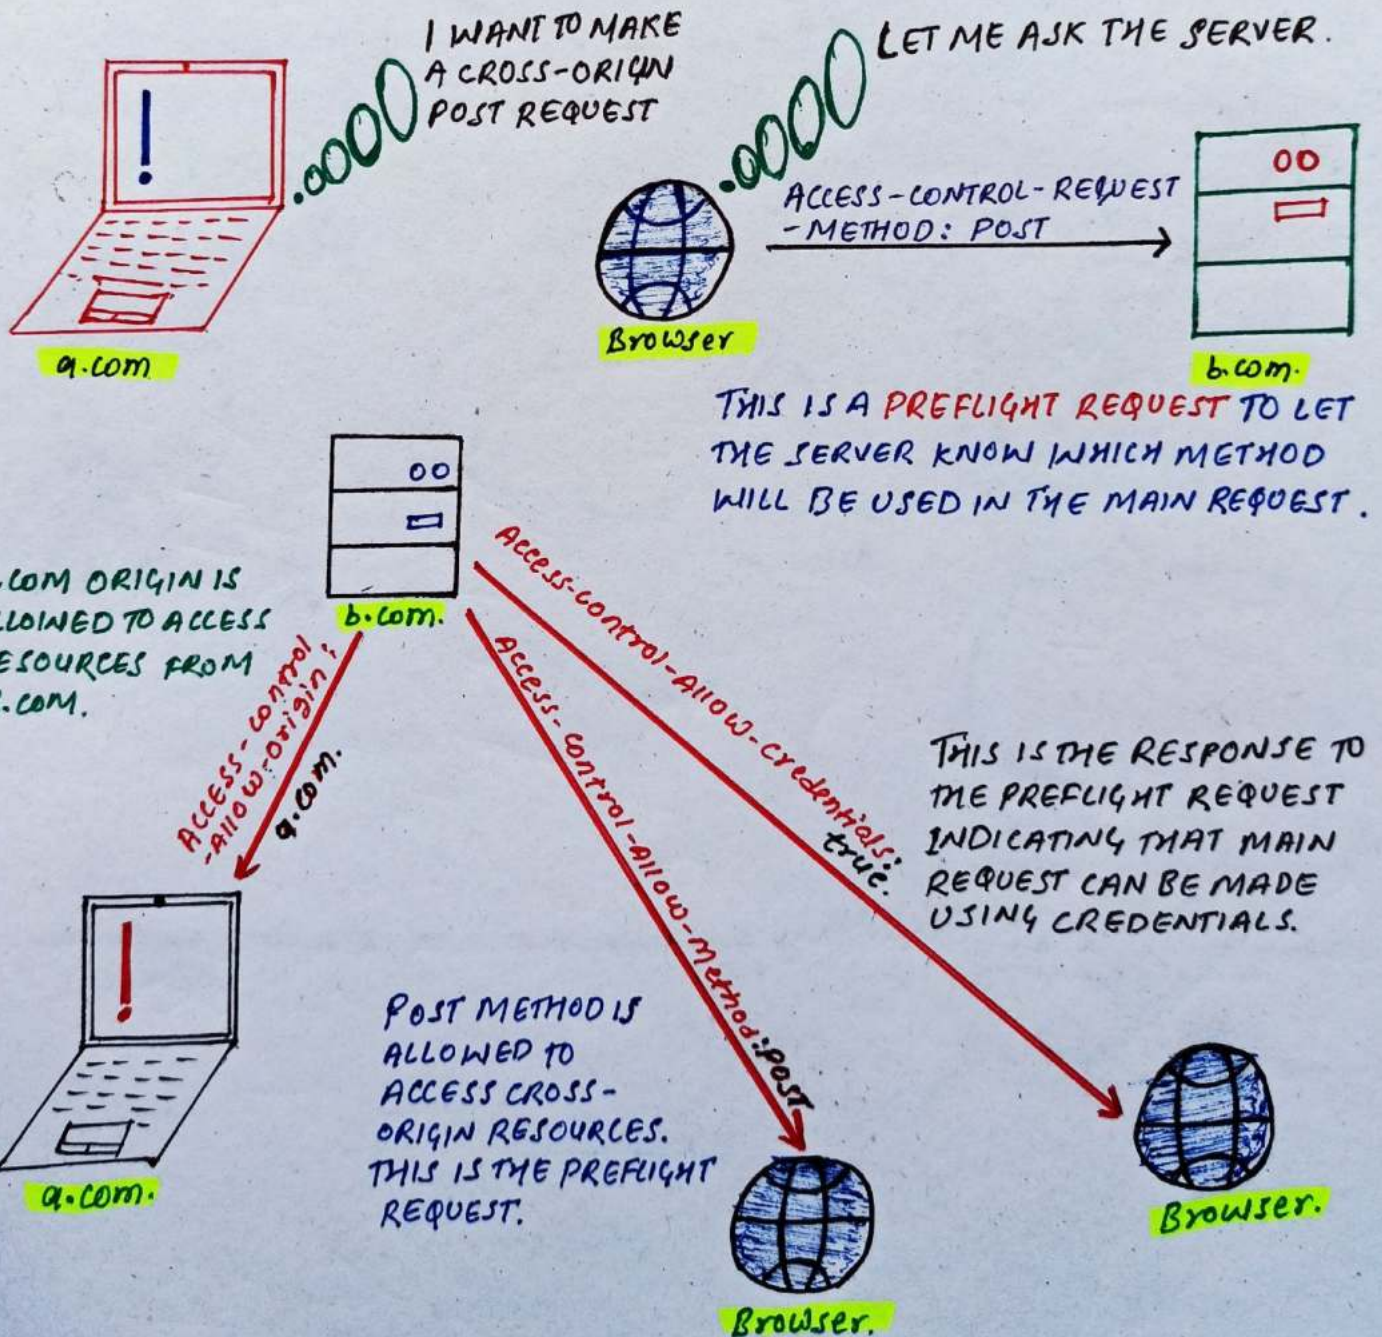 I WANT TO MAKE
A CROSS-ORIGIN
POST REQUEST
LET ME ASK THE SERVER.
ACCESS-CONTROL-REQUEST
-METHOD: POST
a.com
Browser
b.com.
THIS IS A PREFLIGHT REQUEST TO LET
THE SERVER KNOW WHICH METHOD
WILL BE USED IN THE MAIN REQUEST.
b.com.
.COM ORIGIN IS
LLOWED TO ACCESS
ESOURCES FROM
.COM.
ACCESS-control
-Allow-origin:
a.com.
Access-control-Allow-Method:POST
Access-control-Allow-credentials:
true.
THIS IS THE RESPONSE TO
THE PREFLIGHT REQUEST
INDICATING THAT MAIN
REQUEST CAN BE MADE
USING CREDENTIALS.
a.com.
POST METHOD IS
ALLOWED TO
ACCESS CROSS-
ORIGIN RESOURCES.
THIS IS THE PREFLIGHT
REQUEST.
Browser.
Browser.